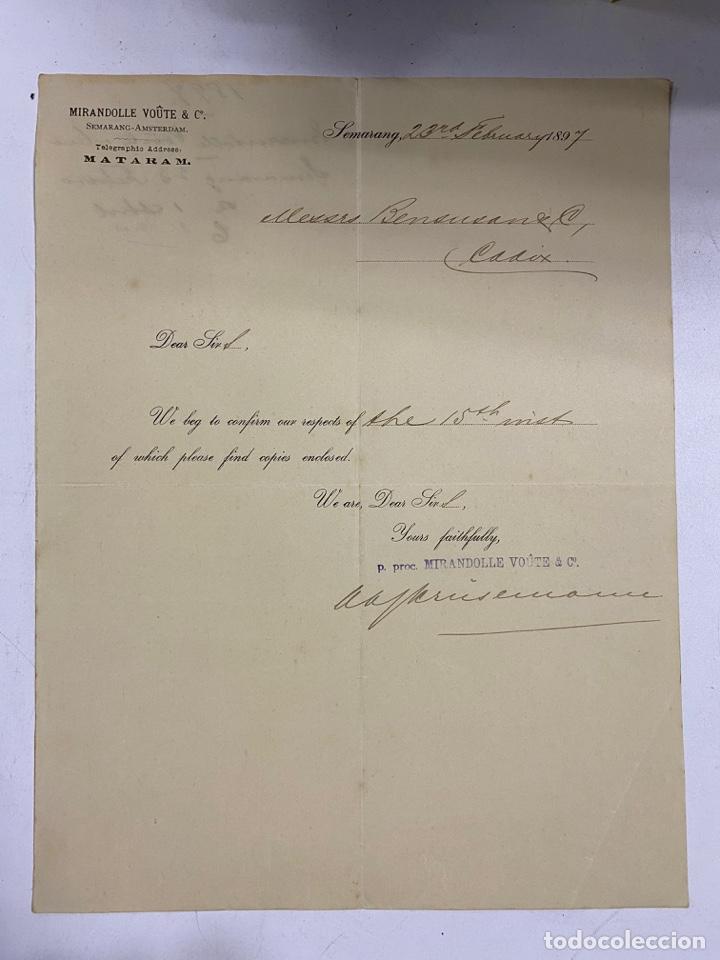 MIRANDOLLE VOÛTE & Cº.
SEMARANG-AMSTERDAM.
Telegraphic Address:
MATARAM.
Semarang, 23rd February 1897
Messrs Bensusan & C,
Cadix.
Dear Sirs,
We beg to confirm our respects of the 15th inst
of which please find copies enclosed.
We are, Dear Sirs,
Yours faithfully,
p. proc. MIRANDOLLE VOÛTE & Cº.
todocoleccion
todocoleccion.net